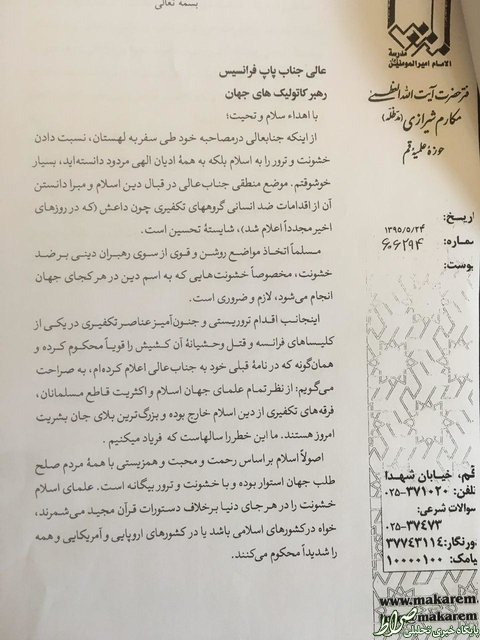 بسمه تعالی
مدرسة
الامام امیرالمومنین
دفتر حضرت آیت الله العظمی
مکارم شیرازی (مدظله)
حوزه علمیه قم
اریخ:
۱۳۹۵/۵/۲۴
شماره:
۶۰۶۲۹۴
پوست:
عالی جناب پاپ فرانسیس
رهبر کاتولیک های جهان
با اهداء سلام و تحیت؛
از اینکه جنابعالی درمصاحبه خود طی سفر به لهستان، نسبت دادن
خشونت و ترور را به اسلام بلکه به همهٔ ادیان الهی مردود دانسته‌اید، بسیار
خوشوقتم. موضع منطقی جناب‌عالی در قبال دین اسلام و مبرا دانستن
آن از اقدامات ضد انسانی گروههای تکفیری چون داعش (که در روزهای
اخیر مجدداً اعلام شد)، شایستهٔ تحسین است.
مسلماً اتخاذ مواضع روشن و قوی از سوی رهبران دینی بر ضد
خشونت، مخصوصاً خشونت‌هایی که به اسم دین در هر کجای جهان
انجام می‌شود، لازم و ضروری است.
اینجانب اقدام تروریستی و جنون‌آمیز عناصر تکفیری در یکی از
کلیساهای فرانسه و قتل وحشیانهٔ آن کشیش را قویاً محکوم کرده و
همان‌گونه که در نامهٔ قبلی خود به جناب‌عالی اعلام کرده‌ام، به صراحت
می‌گویم: از نظر تمام علمای جهان اسلام و اکثریت قاطع مسلمانان،
فرقه‌های تکفیری از دین اسلام خارج بوده و بزرگ‌ترین بلای جان بشریت
امروز هستند. ما این خطر را سالهاست که فریاد میکنیم .
اصولاً اسلام بر اساس رحمت و محبت و همزیستی با همهٔ مردم صلح
طلب جهان استوار بوده و با خشونت و ترور بیگانه است. علمای اسلام
خشونت را در هر جای دنیا برخلاف دستورات قرآن مجید می‌شمرند،
خواه در کشورهای اسلامی باشد یا در کشورهای اروپایی و آمریکایی و همه
را شدیداً محکوم می‌کنند.
قم، خیابان شهدا
تلفن: ۳۷۱۰۲۰-۰۲۵
سوالات شرعی:
۰۲۵-۳۷۴۷۳
ورنگار: ۳۷۷۴۳۱۱۴
یامک: ۱۰۰۰۰۱۰۰
www.makarem.
صراط
پایگاه خبری تحلیلی